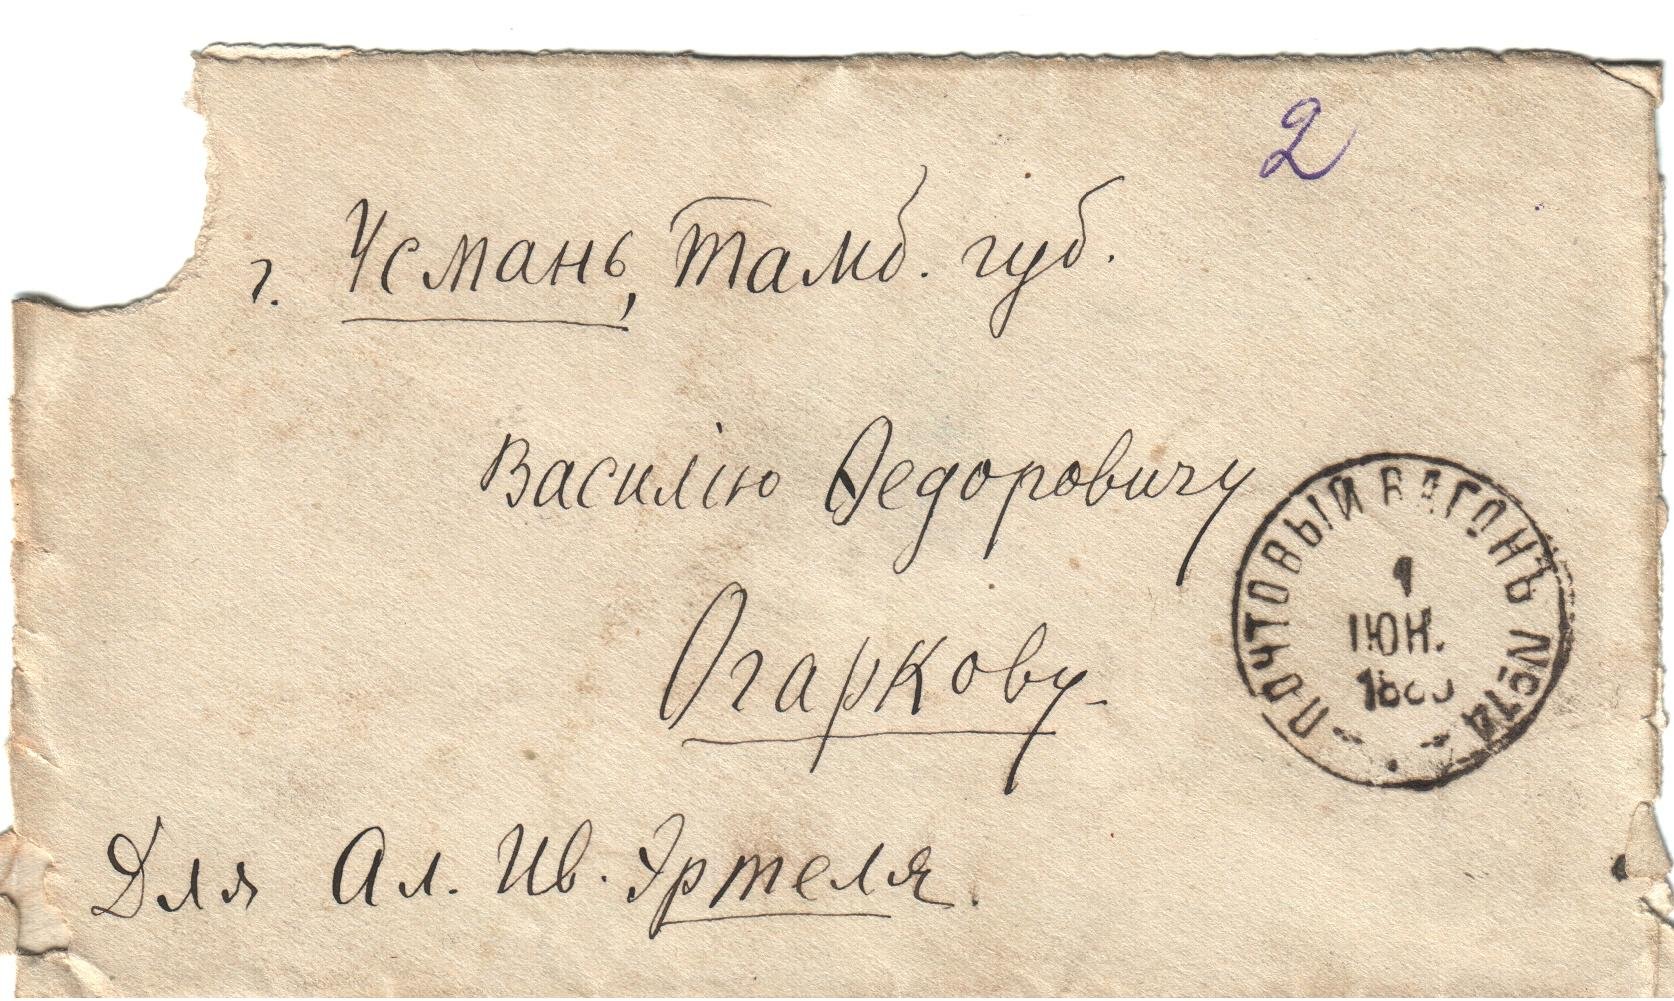 2
г. Усмань, Тамб. губ.
Василію Ѳедоровичу
Огаркову
Для Ал. Ив. Эртеля.
ПОЧТОВЫЙ ВАГОНЪ
1
ІЮН.